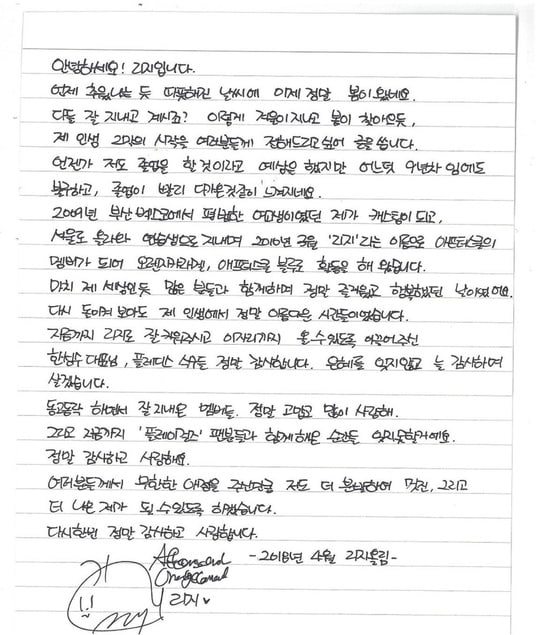 안녕하세요! 리지입니다.
언제 추웠냐는 듯 따뜻해진 날씨에 이제 정말 봄이 왔네요.
다들 잘 지내고 계시죠? 이렇게 겨울이 지나고 봄이 찾아오듯,
제 인생 2막의 시작을 여러분들께 전해드리고 싶어 글을 씁니다.
언젠가 저도 졸업을 할 것이라고 예상은 했지만 어느덧 9년차 임에도
불구하고, 졸업이 빨리 다가온것같이 느껴지네요.
2009년 부산 벡스코에서 평범한 여고생이였던 제가 캐스팅이 되고,
서울로 올라와 연습생으로 지내며 2010년 3월 '리지'라는 이름으로 애프터스쿨의
멤버가 되어 오렌지캬라멜, 애프터스쿨 블루로 활동을 해 왔습니다.
마치 제 세상인듯 많은 분들과 함께하며 정말 즐거웠고 행복했던 날이었어요.
다시 돌이켜 보아도 제 인생에서 정말 아름다운 시간들이었습니다.
지금까지 리지로 잘 키워주시고 이자리까지 올 수 있도록 이끌어주신
한성수 대표님, 플레디스 식구들 정말 감사합니다. 은혜를 잊지않고 늘 감사하며
살겠습니다.
동고동락 하면서 잘 지내온 멤버들. 정말 고맙고 많이 사랑해.
그리고 지금까지 '플레이걸즈' 팬분들과 함께 해온 순간들 잊지못할거예요.
정말 감사하고 사랑해요.
여러분들께서 무한한 애정을 주신만큼 저도 더 분발하여 멋진, 그리고
더 나은 제가 될 수 있도록 하겠습니다.
다시한번 정말 감사하고 사랑합니다.
-2018년 4월 리지올림-
Afterschool
Orangecaramel
리지♥